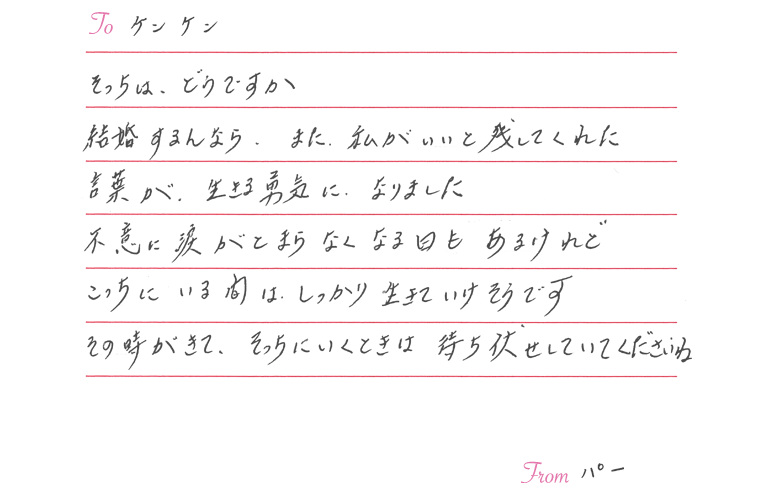 To ケンケン
そっちは、どうですか
結婚するんなら、また、私がいいと残してくれた
言葉が、生きる勇気に、なりました
不意に涙がとまらなくなる日もあるけれど
こっちにいる間は、しっかり生きていけそうです
その時がきて、そっちにいくときは待ち伏せしていてくださいね
From パー